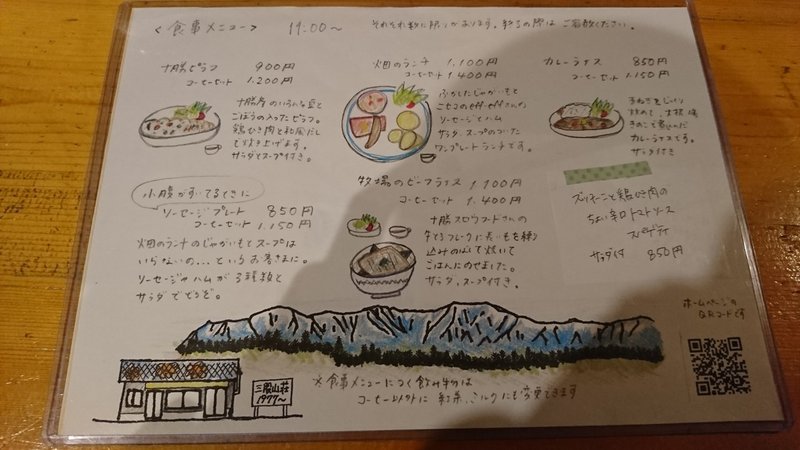 <食事メニュー> 11:00~ それぞれ数に限りがあります。終了の際はご容赦ください。
十勝ピラフ 900円
コーヒーセット 1,200円
十勝産のいろんな豆と
ごぼうの入ったピラフ。
鶏ひき肉と和風だし
で炊き上げます。
サラダとスープ付き。
畑のランチ 1,100円
コーヒーセット 1,400円
ふかしたじゃがいもと
ソーセージとハム
サラダ、スープのついた
ワンプレートランチです。
カレーライス 850円
コーヒーセット 1,150円
玉ねぎをじっくり
炒めて、
カレーライスです。
サラダ付き
小腹がすいてるときに
ソーセージプレート 850円
コーヒーセット 1,150円
畑のランチのじゃがいもとスープは
いらないの...というお客さまに。
ソーセージやハムが3種類と
サラダでどうぞ。
牧場のビーフライス 1,100円
コーヒーセット 1,400円
十勝スロウフードさんの
牛とろフレークに長いもを練り
込みのばして焼いて
ごはんにのせました。
サラダ、スープ付き。
ズッキーニと鶏ひき肉の
ちょい辛口トマトソース
スパゲティ
サラダ付 850円
ホームページの
QRコードです
三股山荘
1977~
※食事メニューにつく飲み物は
コーヒー以外に 紅茶、ミルクにも変更できます